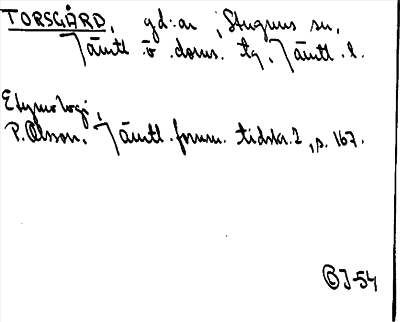 TORSGÅRD, gd:ar i Stuguns sn,
Jämtl. ö. doms. tg, Jämtl. l.
Etymologi,
P. Olsson, Jämtl. fornm. tidskr. 2, s. 167.
BJ-54